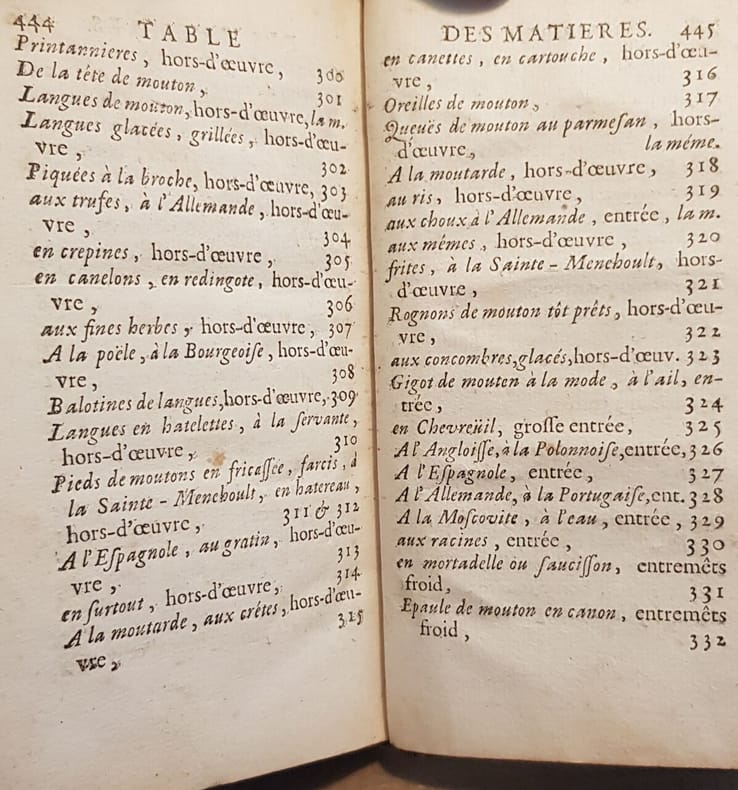 444 TABLE
Printannieres, hors-d'œuvre, 300
De la tête de mouton, 301
Langues de mouton, hors-d'œuvre, la m.
Langues glacées, grillées, hors-d'œu-
vre, 302
Piquées à la broche, hors-d'œuvre, 303
aux trufes, à l'Allemande, hors-d'œu-
vre, 304
en crepines, hors-d'œuvre, 305
en canelons, en redingote, hors-d'œu-
vre, 306
aux fines herbes, hors-d'œuvre, 307
A la poële, à la Bourgeoise, hors-d'œu-
vre, 308
Balotines de langues, hors-d'œuvre, 309
Langues en hatelettes, à la servante,
hors-d'œuvre, 310
Pieds de moutons en fricassée, farcis, à
la Sainte-Menehoult, en hatereau,
hors-d'œuvre, 311 & 312
A l'Espagnole, au gratin, hors-d'œu-
vre, 313
en surtout, hors-d'œuvre, 314
A la moutarde, aux crêtes, hors-d'œu-
vre, 315
DES MATIERES. 445
en canettes, en cartouche, hors-d'œu-
vre, 316
Oreilles de mouton, 317
Queuës de mouton au parmesan, hors-
d'œuvre, la méme.
A la moutarde, hors-d'œuvre, 318
au ris, hors-d'œuvre, 319
aux choux à l'Allemande, entrée, la m.
aux mémes, hors-d'œuvre, 320
frites, à la Sainte-Menehoult, hors-
d'œuvre, 321
Rognons de mouton tôt prêts, hors-d'œu-
vre, 322
aux concombres, glacés, hors-d'œuv. 323
Gigot de mouten à la mode, à l'ail, en-
trée, 324
en Chevreüil, grosse entrée, 325
A l'Angloisse, à la Polonnoise, entrée, 326
A l'Espagnole, entrée, 327
A l'Allemande, à la Portugaise, ent. 328
A la Moscovite, à l'eau, entrée, 329
aux racines, entrée, 330
en mortadelle ou saucisson, entremêts
froid, 331
Epaule de mouton en canon, entremêts
froid, 332